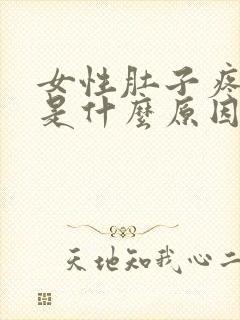 女性肚子疼
是什麼原因
天地知我心二